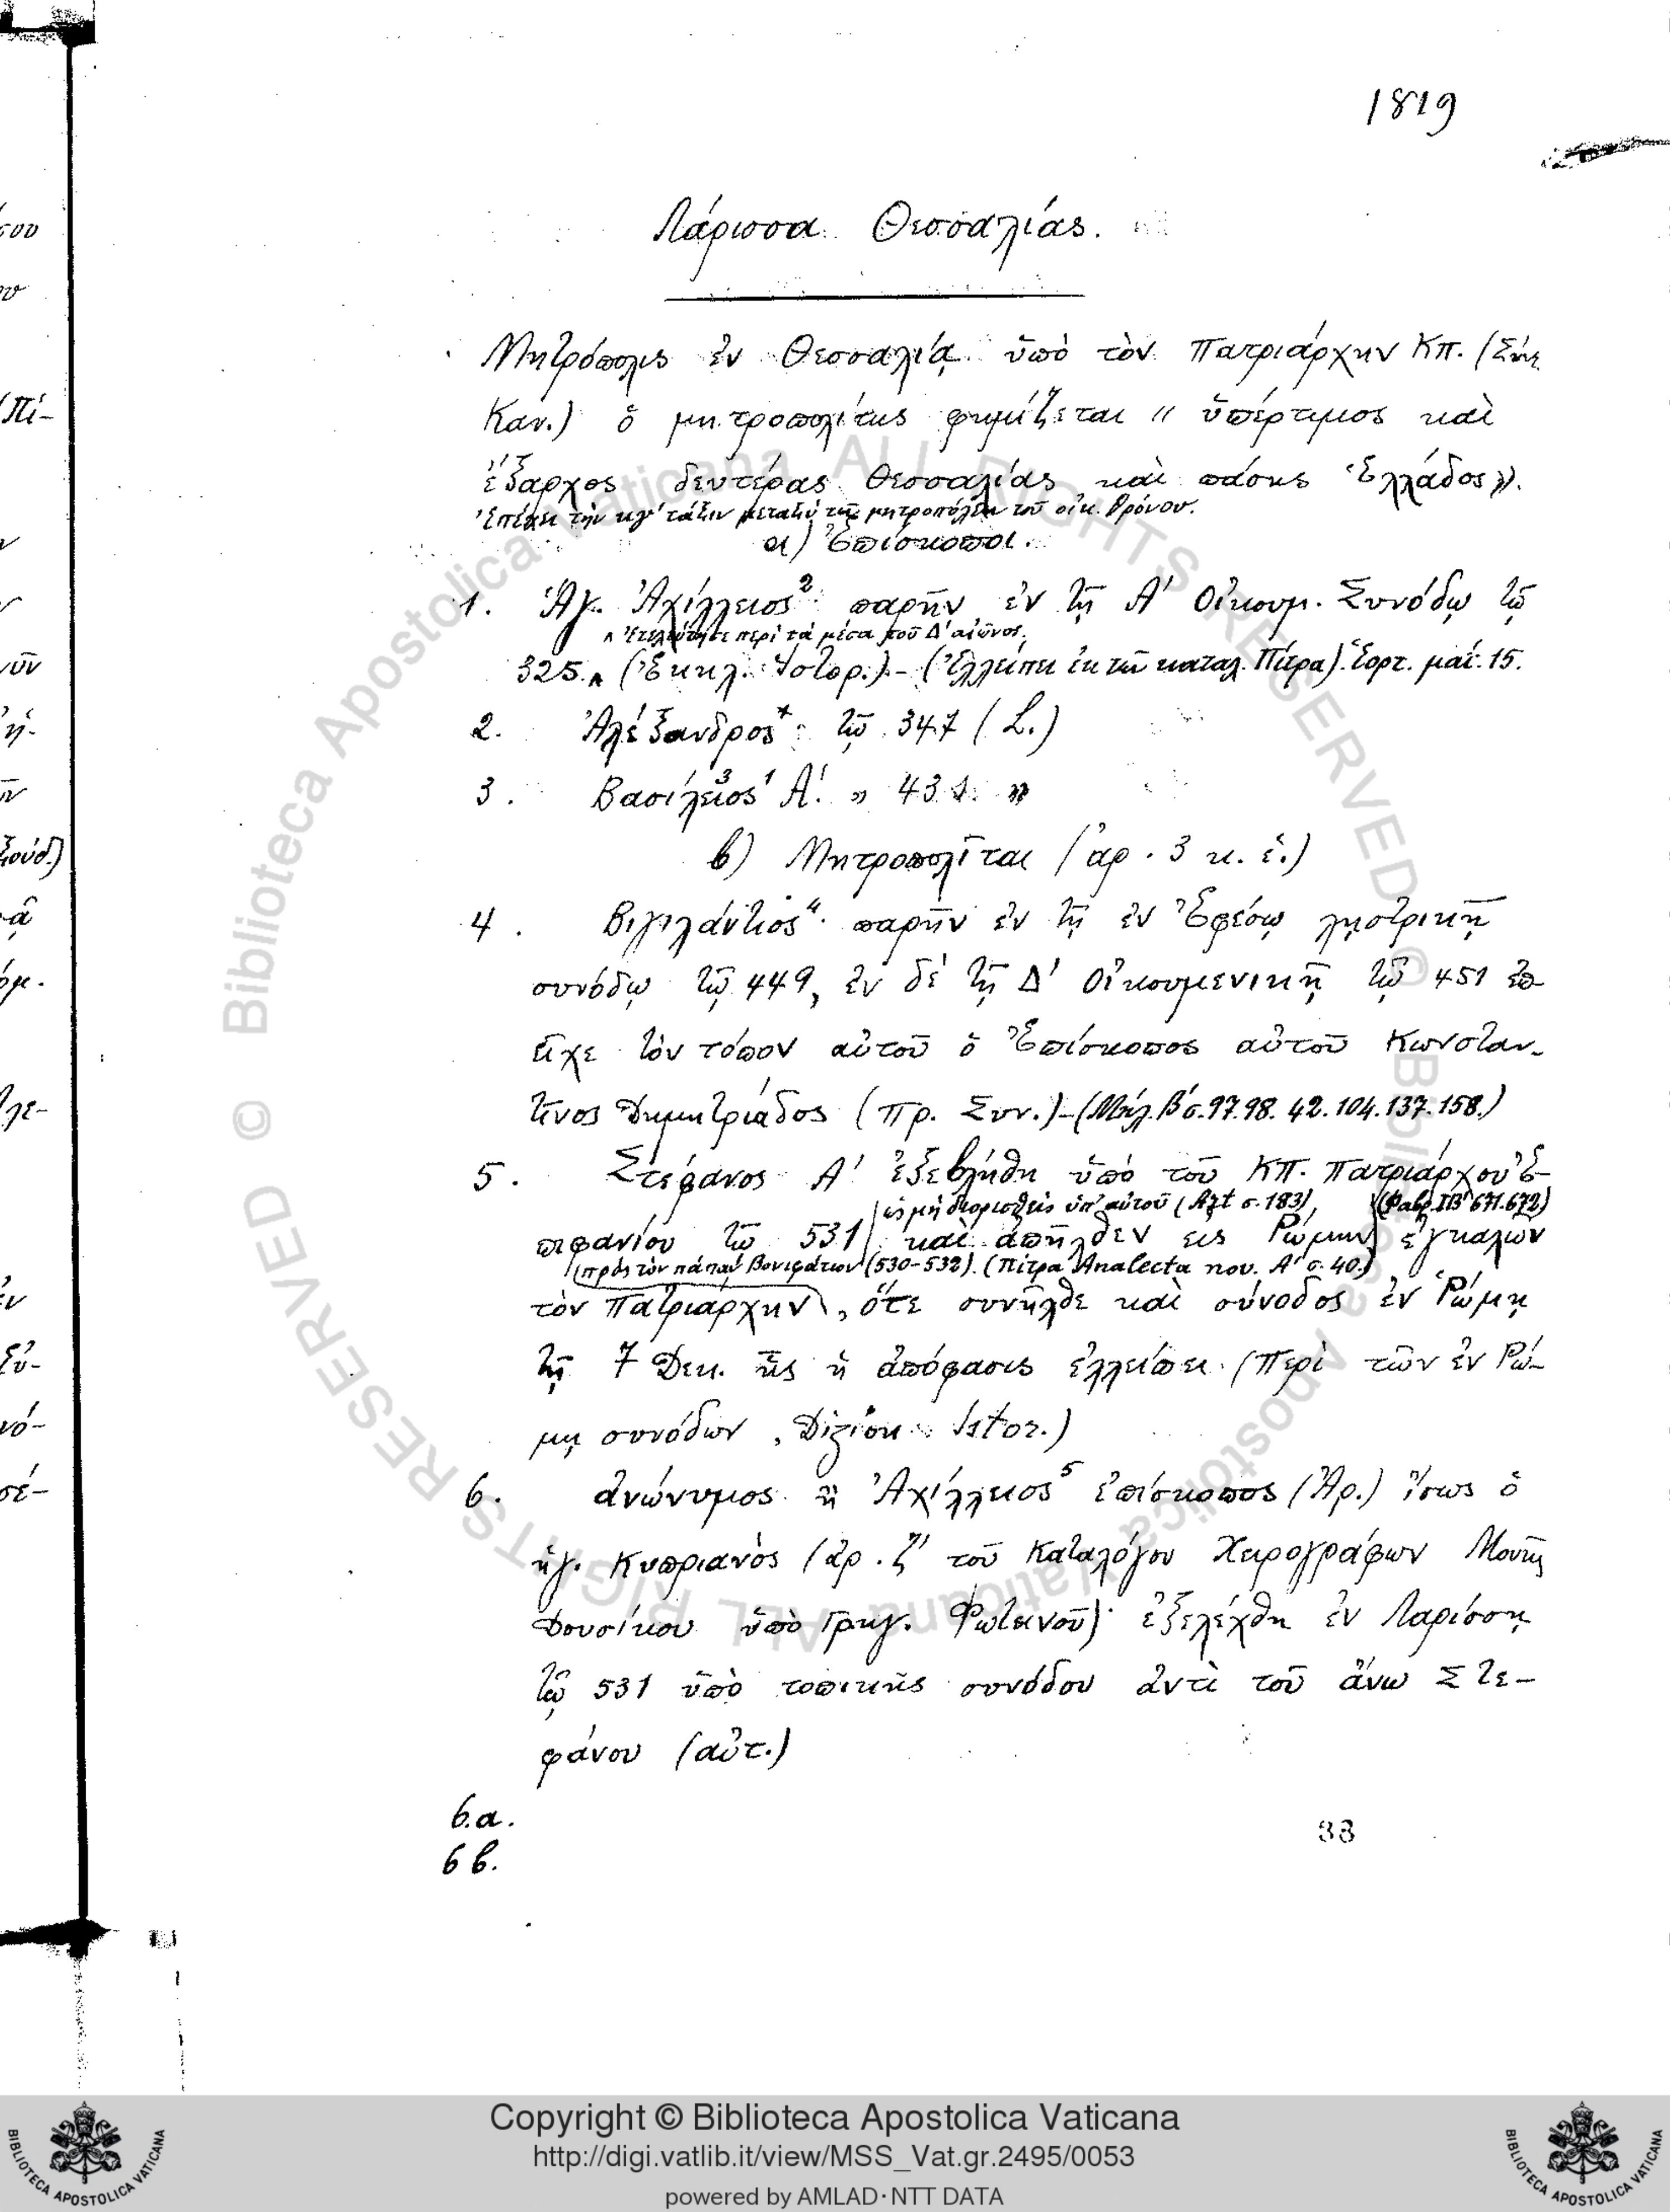 1819
Λάρισσα Θεσσαλίας.
Μητρόπολις ἐν Θεσσαλίᾳ ὑπὸ τὸν Πατριάρχην Κπ. (Σύν.
Καν.) ὁ μητροπολίτης φημίζεται «ὑπέρτιμος καὶ
ἔξαρχος δευτέρας Θεσσαλίας καὶ πάσης Ἑλλάδος».
Ἐπέχει τὴν κγ' τάξιν μεταξὺ τῶν μητροπόλεων τοῦ οἰκ. θρόνου.
α) Ἐπίσκοποι.
1. Ἅγ. Ἀχίλλειος² παρῆν ἐν τῇ Α' Οἰκουμ. Συνόδῳ τῷ
^ Ἐτελεύτησε περὶ τὰ μέσα τοῦ Δ' αἰῶνος.
325.^ (Ἐκκλ. Ἱστορ.).- (Ἐλλείπει ἐκ τῶν καταλ. Πίτρα). Ἑορτ. μαΐ. 15.
2. Ἀλέξανδρος⁺ τῷ 347 (L.)
3. Βασίλειος³ Α'. » 431. »
β) Μητροπολῖται (ἀρ. 3 κ. ἑ.)
4. Βιγιλάντιος⁴ παρῆν ἐν τῇ ἐν Ἐφέσῳ λῃστρικῇ
συνόδῳ τῷ 449, ἐν δὲ τῇ Δ' Οἰκουμενικῇ τῷ 451 ἐπ
εῖχε τὸν τόπον αὐτοῦ ὁ Ἐπίσκοπος αὐτοῦ Κωνσταν-
τῖνος Δημητριάδος (Πρ. Συν.)-(Μάλ. Β' σ. 97. 98. 42. 104. 137. 158.)
5. Στέφανος Α' ἐξεβλήθη ὑπὸ τοῦ ΚΠ. Πατριάρχου Ἐ-
ὡς μὴ διορισθεὶς ὑπ' αὐτοῦ (Αλt σ. 183), (Φαβρ. ΙΒ' 671.672)
πιφανίου τῷ 531 καὶ ἀπῆλθεν εἰς Ῥώμην ἐγκαλῶν
(πρὸς τὸν πάπαν Βονιφάτιον (530-532). (Πίτρα Analecta nov. Α' σ. 40.)
τὸν Πατριάρχην, ὅτε συνῆλθε καὶ σύνοδος ἐν Ῥώμῃ
τῇ 7 Δεκ. ἧς ἡ ἀπόφασις ἐλλείπει. (Περὶ τῶν ἐν Ῥώ-
μῃ συνόδων, Dizion. Istor.)
6. ἀνώνυμος ἢ Ἀχίλλειος⁵ ἐπίσκοπος (Ἀρ.) ἴσως ὁ
ἡγ. Κυπριανὸς (ἀρ. ζ' τοῦ Καταλόγου Χειρογράφων Μονῆς
Δουσίκου ὑπὸ Γρηγ. Φωτεινοῦ) ἐξελέχθη ἐν Λαρίσσῃ
τῷ 531 ὑπὸ τοπικῆς συνόδου ἀντὶ τοῦ ἄνω Στε-
φάνου (αὐτ.)
6.α.
6β.
38
Copyright © Biblioteca Apostolica Vaticana
http://digi.vatlib.it/view/MSS_Vat.gr.2495/0053
powered by AMLAD·NTT DATA